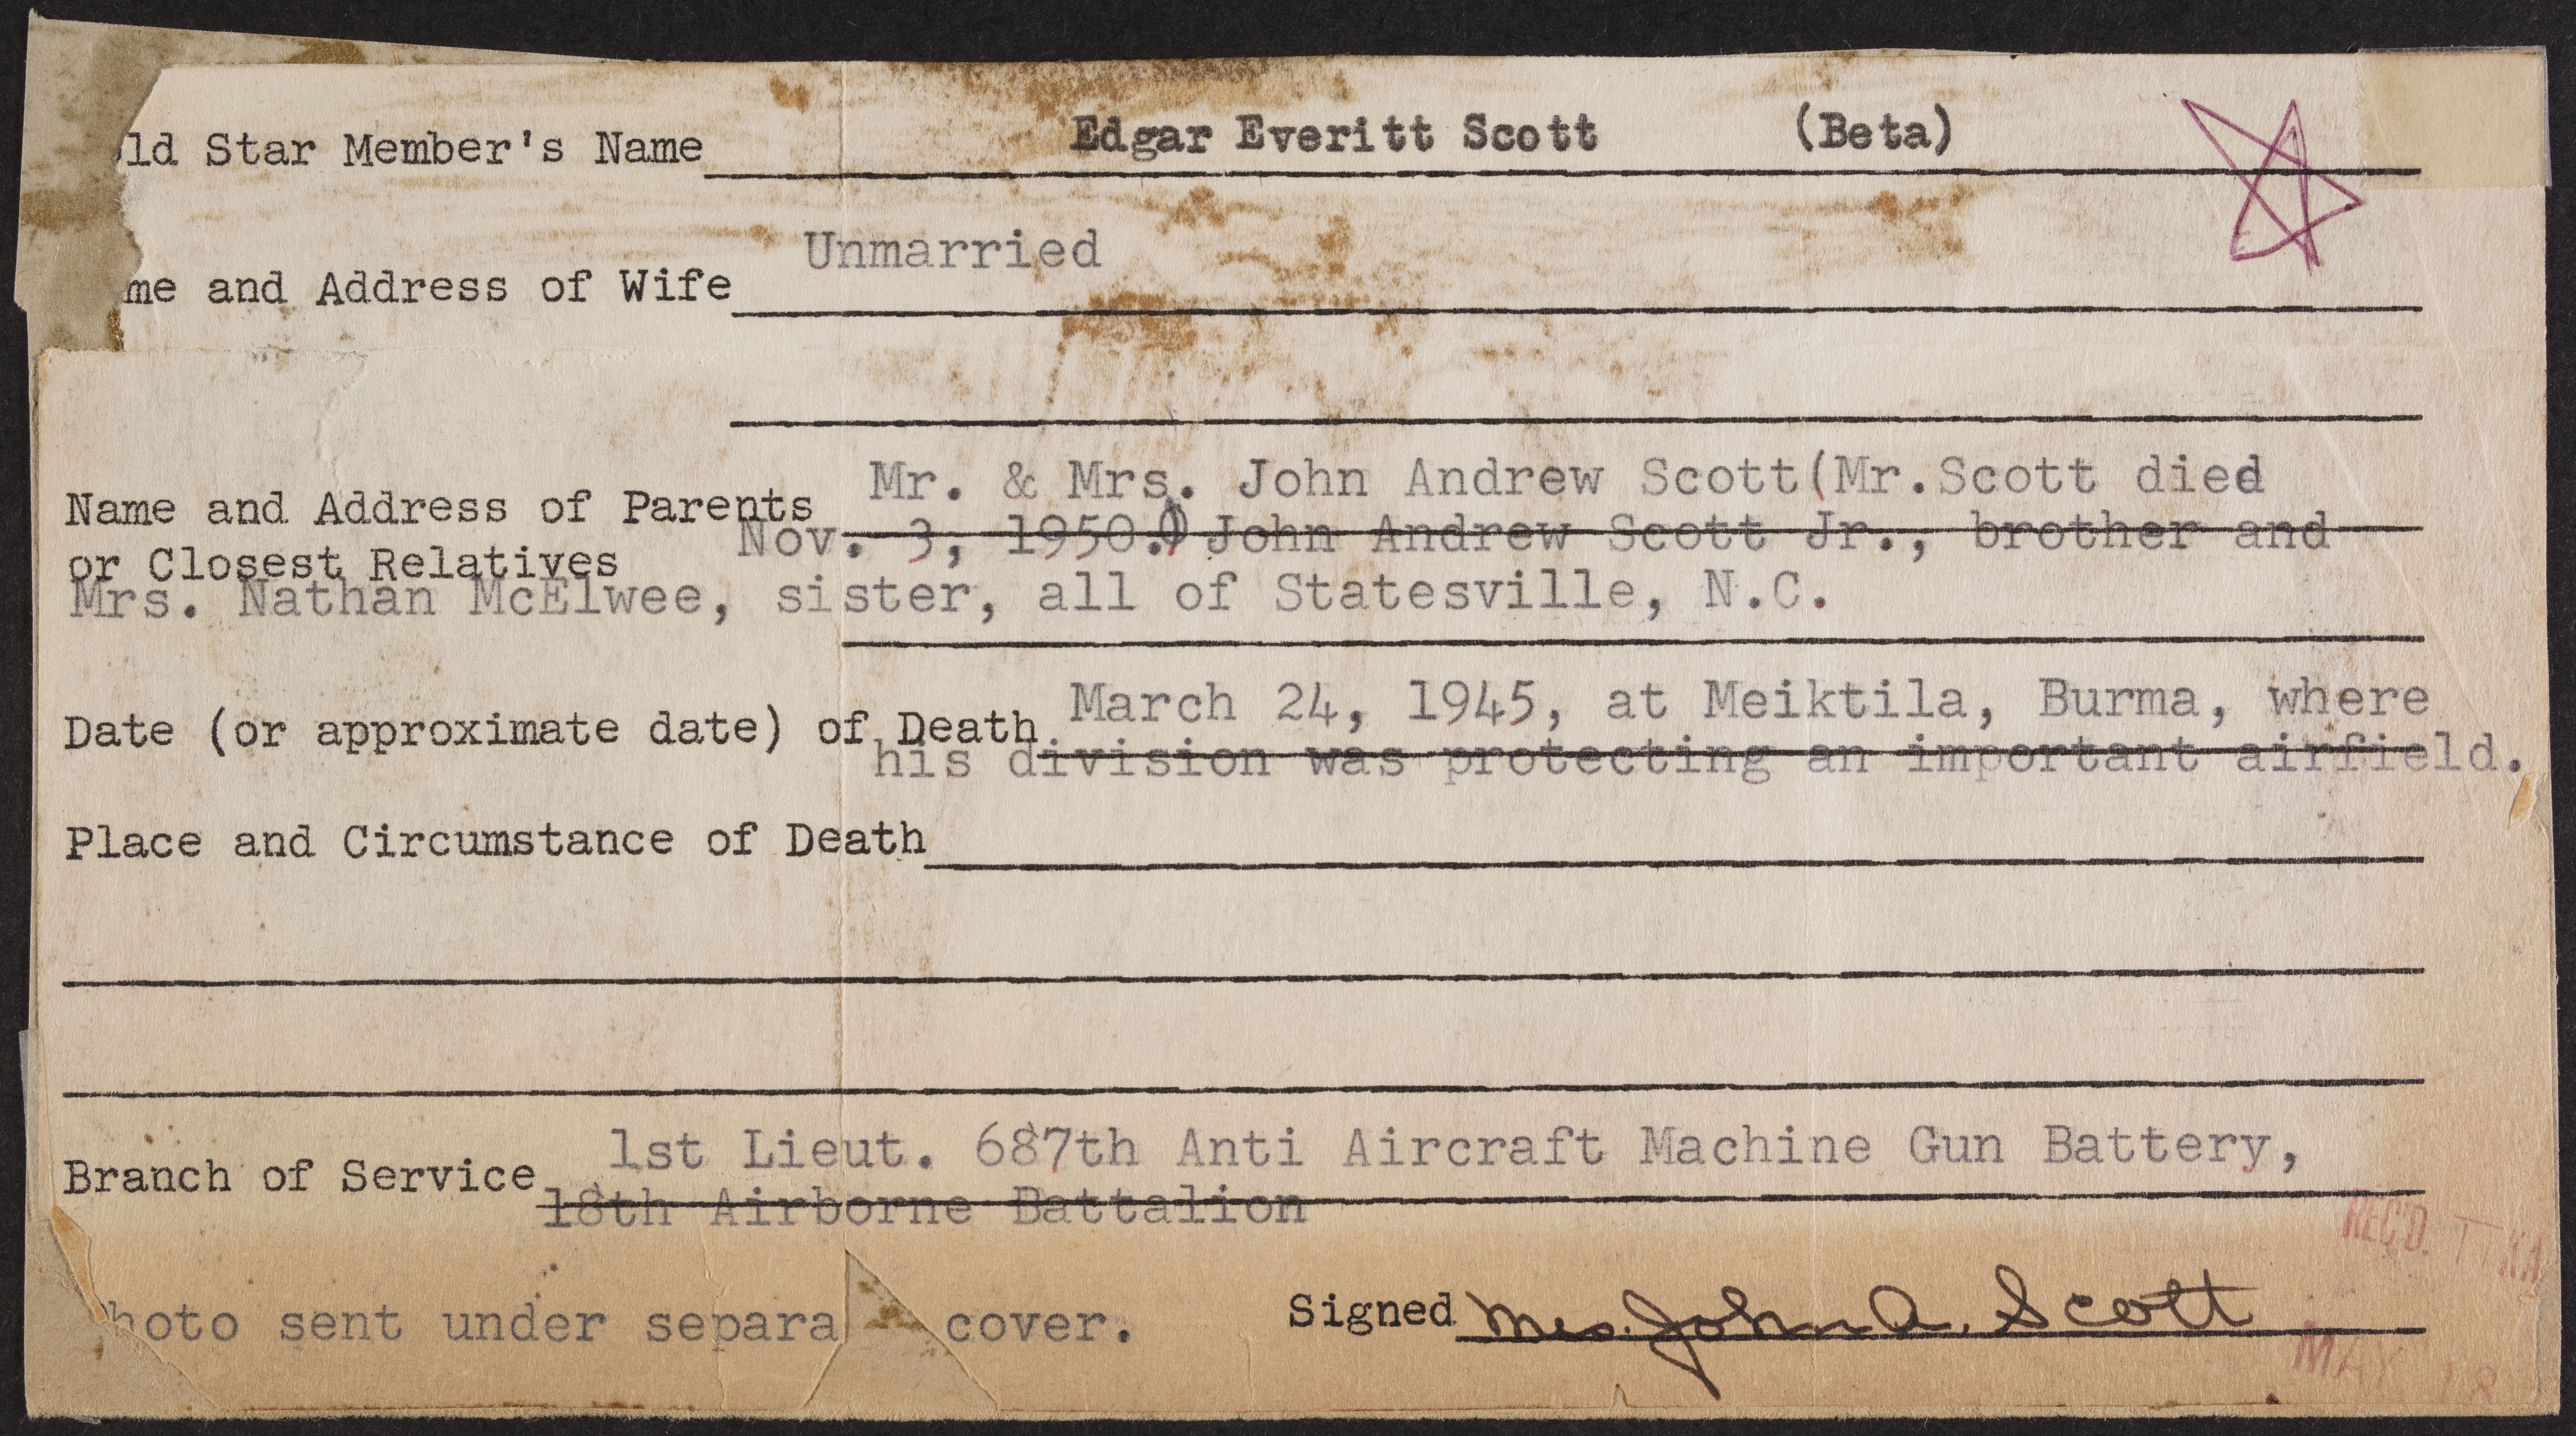 ld Star Member's Name Edgar Everitt Scott (Beta)
Unmarried
me and Address of Wife
Mr. & Mrs. John Andrew Scott(Mr.Scott died
Name and Address of Parents
Nov. 3, 1950.) John Andrew Scott Jr., brother and
or Closest Relatives
Mrs. Nathan McElwee, sister, all of Statesville, N.C.
March 24, 1945, at Meiktila, Burma, where
Date (or approximate date) of Death
his division was protecting an important airfield.
Place and Circumstance of Death
1st Lieut. 687th Anti Aircraft Machine Gun Battery,
Branch of Service
18th Airborne Battalion
REC'D.
hoto sent under separa cover. Signed Mrs. John A. Scott
MAY 18